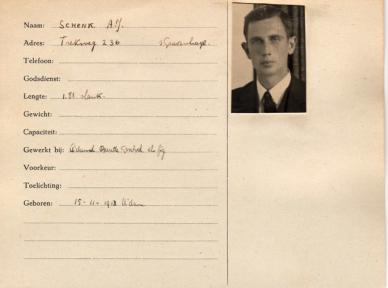 Naam: SCHENK A.J.
Adres: Trekweg 236 's Gravenhage.
Telefoon:
Godsdienst:
Lengte: 1.81 slank.
Gewicht:
Capaciteit:
Gewerkt bij:
Voorkeur:
Toelichting:
Geboren: 15-11-1918